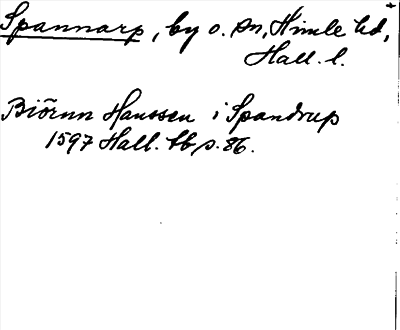 Spannarp, by o. sn, Himle hd,
Hall. l.
Biörnn Hanssen i Spandrup
1597 Hall. bb, s. 86.